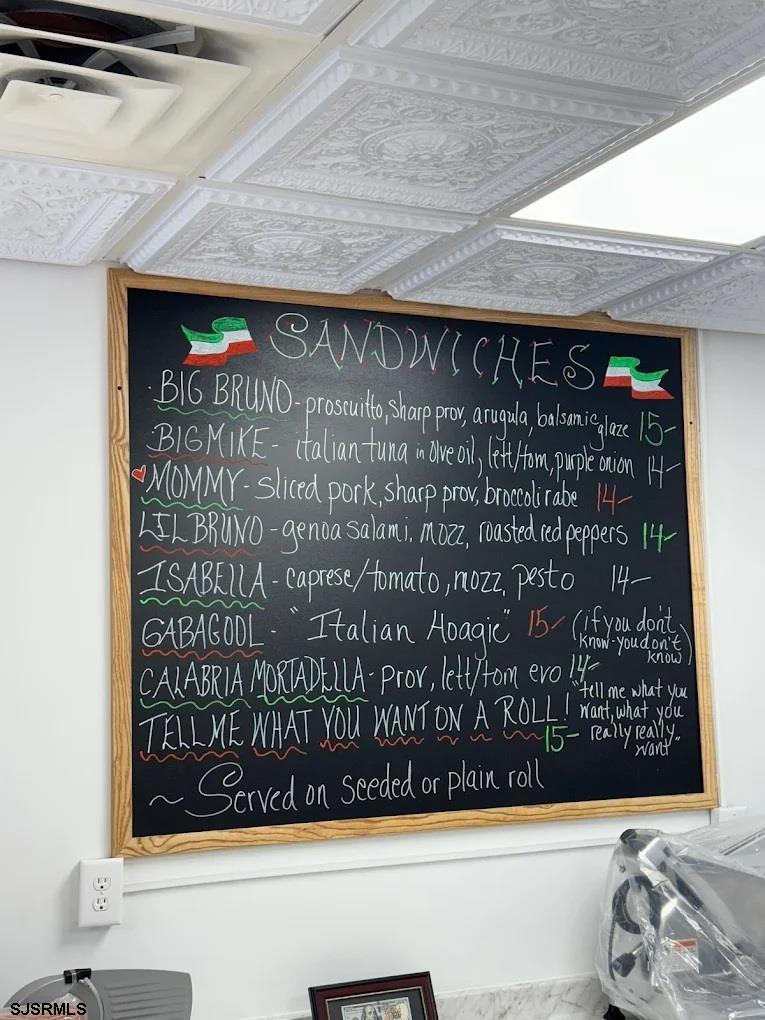 SANDWICHES
BIG BRUNO - proscuitto, sharp prov, arugula, balsamic glaze 15-
BIG MIKE - italian tuna in olive oil, lett/tom, purple onion 14-
MOMMY - sliced pork, sharp prov, broccoli rabe 14-
LIL BRUNO - genoa salami, mozz, roasted red peppers 14-
ISABELLA - caprese/tomato, mozz, pesto 14-
GABAGOOL - "Italian Hoagie" 15- (if you don't
know - you don't
know)
CALABRIA MORTADELLA - prov, lett/tom evo 14-
TELL ME WHAT YOU WANT ON A ROLL! 15-
"tell me what you
want, what you
really really
want"
~ Served on seeded or plain roll
SJSRMLS